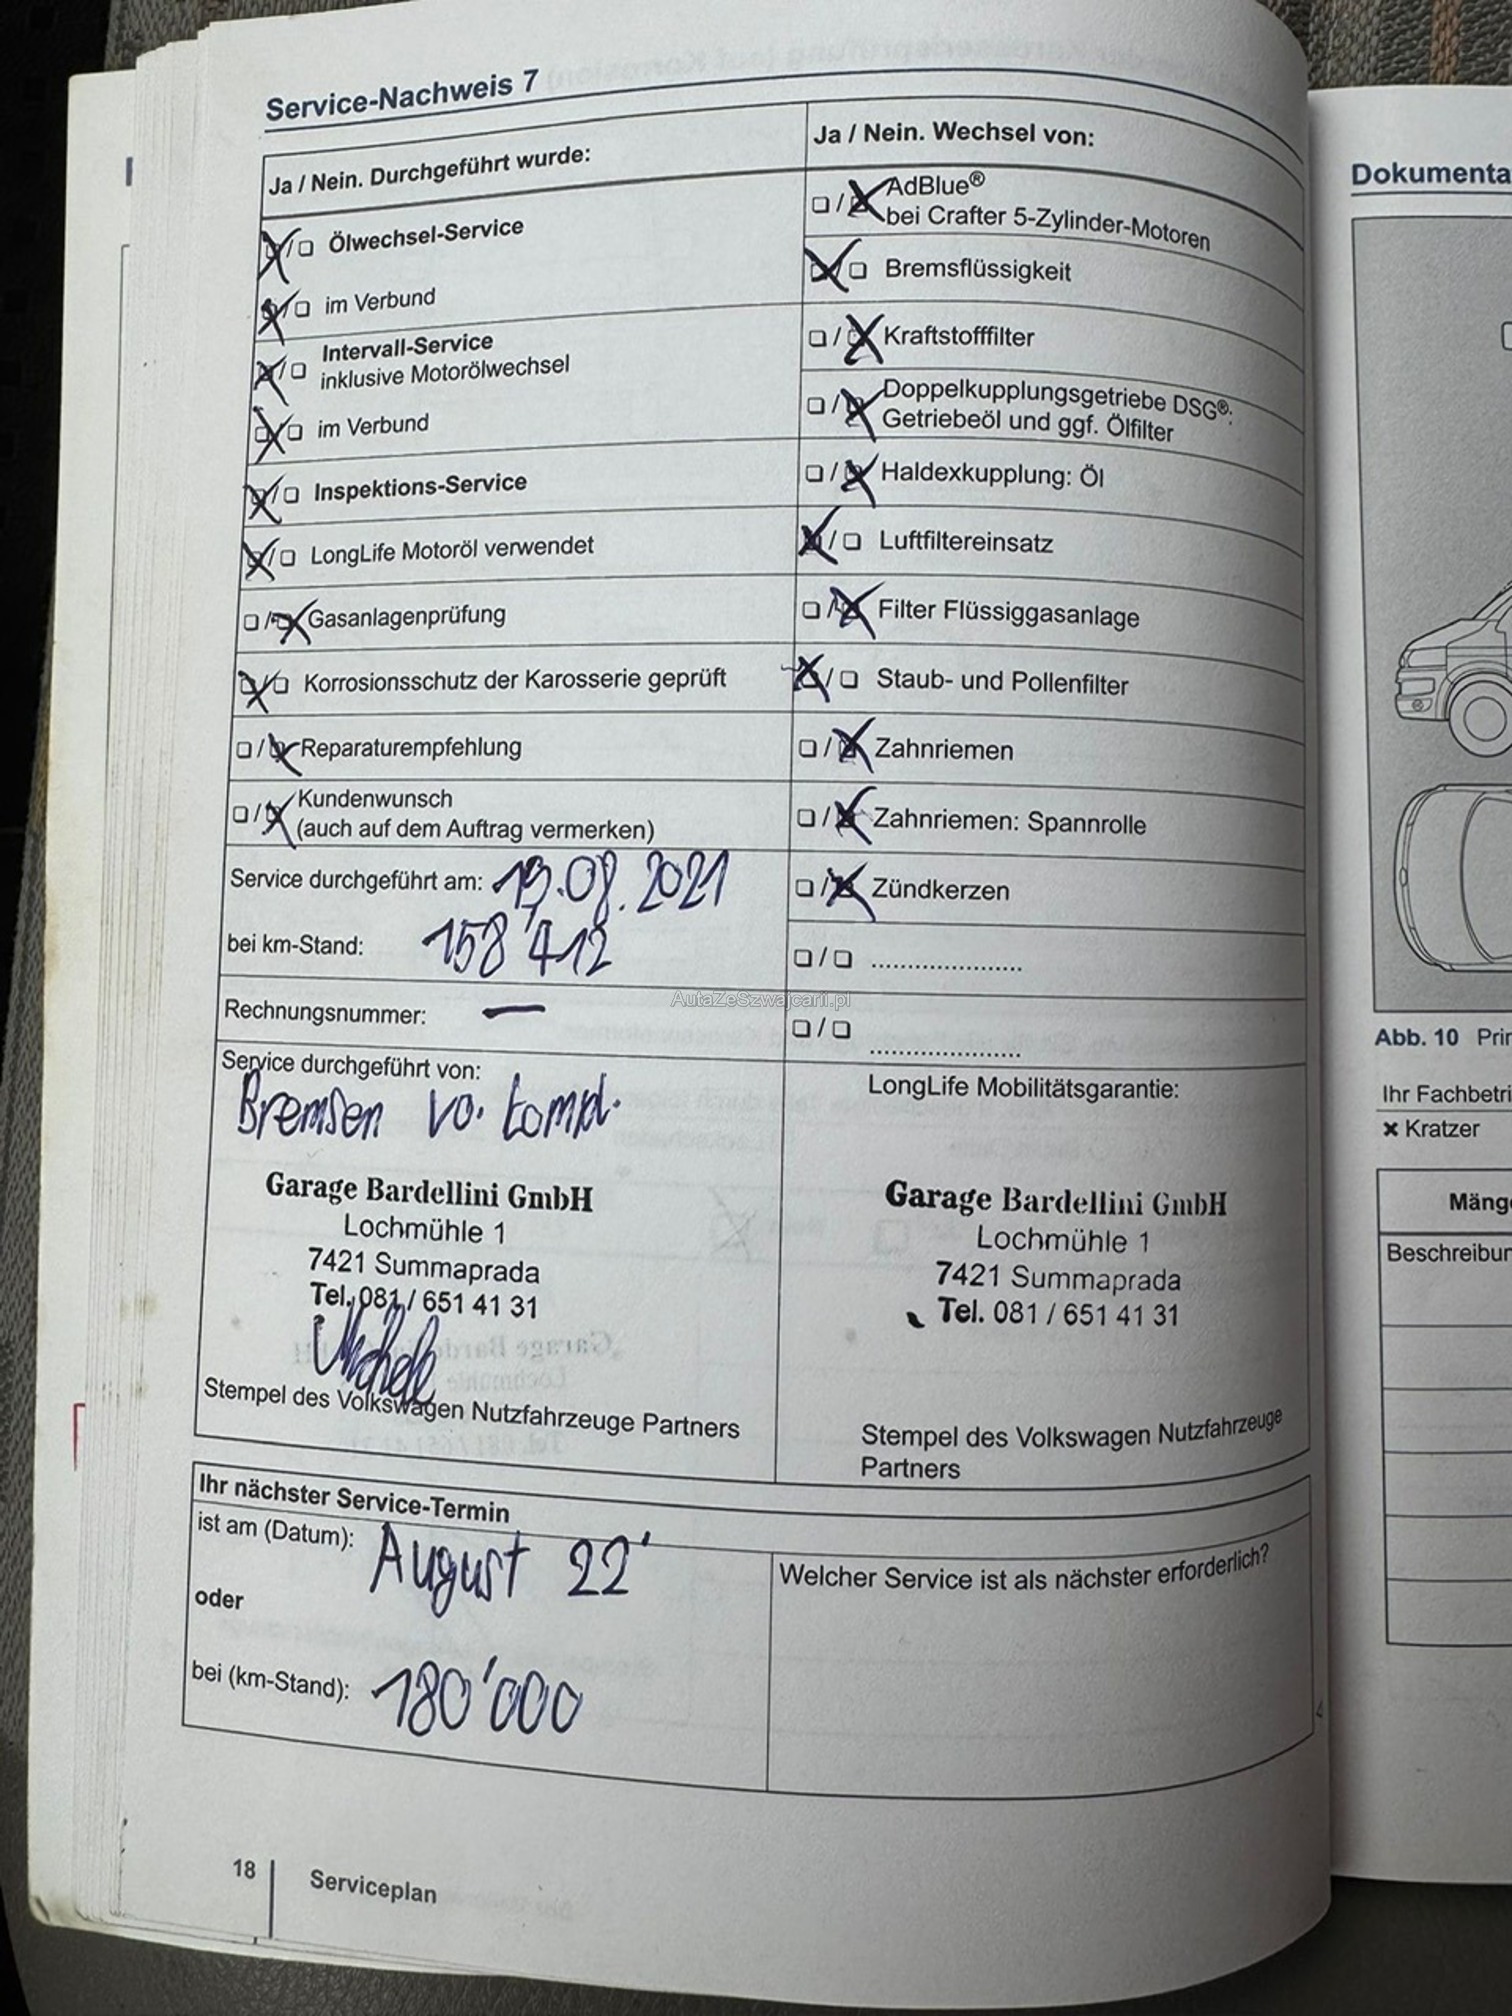 Service-Nachweis 7
Ja / Nein. Durchgeführt wurde:
Ölwechsel-Service
im Verbund
Intervall-Service
inklusive Motorölwechsel
im Verbund
Inspektions-Service
LongLife Motoröl verwendet
Gasanlagenprüfung
Korrosionsschutz der Karosserie geprüft
Reparaturempfehlung
Kundenwunsch
(auch auf dem Auftrag vermerken)
Service durchgeführt am: 19.08.2021
bei km-Stand: 158'412
Rechnungsnummer: —
Service durchgeführt von:
Bremsen vo. kompl.
Garage Bardellini GmbH
Lochmühle 1
7421 Summaprada
Tel. 081 / 651 41 31
Stempel des Volkswagen Nutzfahrzeuge Partners
Ja / Nein. Wechsel von:
AdBlue®
bei Crafter 5-Zylinder-Motoren
Bremsflüssigkeit
Kraftstofffilter
Doppelkupplungsgetriebe DSG®:
Getriebeöl und ggf. Ölfilter
Haldexkupplung: Öl
Luftfiltereinsatz
Filter Flüssiggasanlage
Staub- und Pollenfilter
Zahnriemen
Zahnriemen: Spannrolle
Zündkerzen
AutaZeSzwajcarii.pl
LongLife Mobilitätsgarantie:
Garage Bardellini GmbH
Lochmühle 1
7421 Summaprada
Tel. 081 / 651 41 31
Stempel des Volkswagen Nutzfahrzeuge
Partners
Ihr nächster Service-Termin
ist am (Datum): August 22'
oder
bei (km-Stand): 180'000
Welcher Service ist als nächster erforderlich?
18
Serviceplan
Dokumenta
Abb. 10 Prin
Ihr Fachbetri
× Kratzer
Mäng
Beschreibun